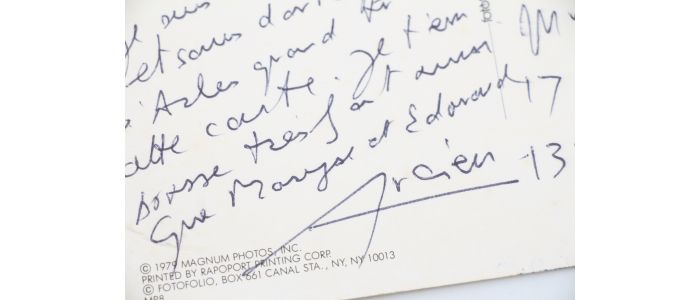 Je suis
et sans d'or
d'Arles grand
cette carte. Je t'em
très fort ainsi
que Maryse et Edouard
17
13
© 1979 MAGNUM PHOTOS, INC.
PRINTED BY RAPOPORT PRINTING CORP.
© FOTOFOLIO, BOX 661 CANAL STA., NY, NY 10013